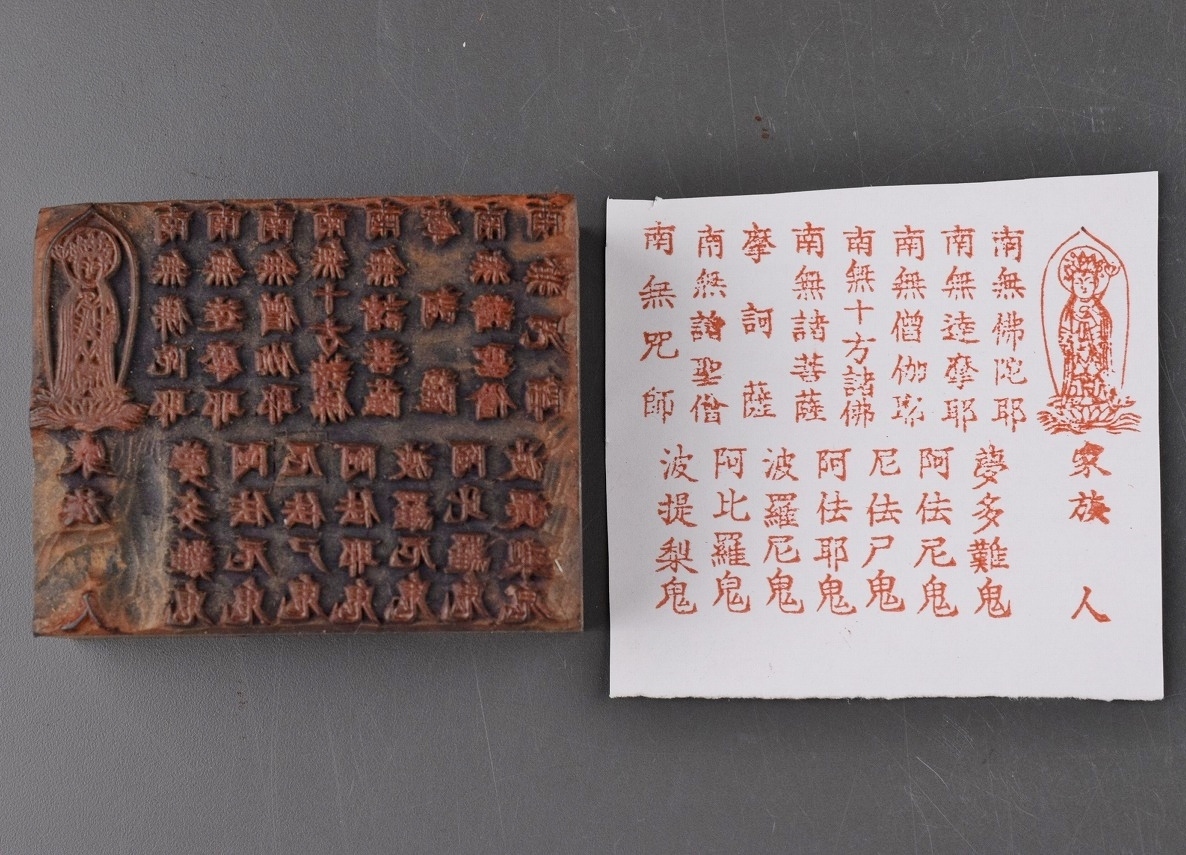 家族 人
南無佛陀耶
南無達摩耶
南無僧伽耶
南無十方諸佛
南無諸菩薩
摩訶薩
南無諸聖僧
南無咒師
夢多難鬼
阿佉尼鬼
尼佉尸鬼
阿佉耶鬼
波羅尼鬼
阿比羅鬼
波提梨鬼